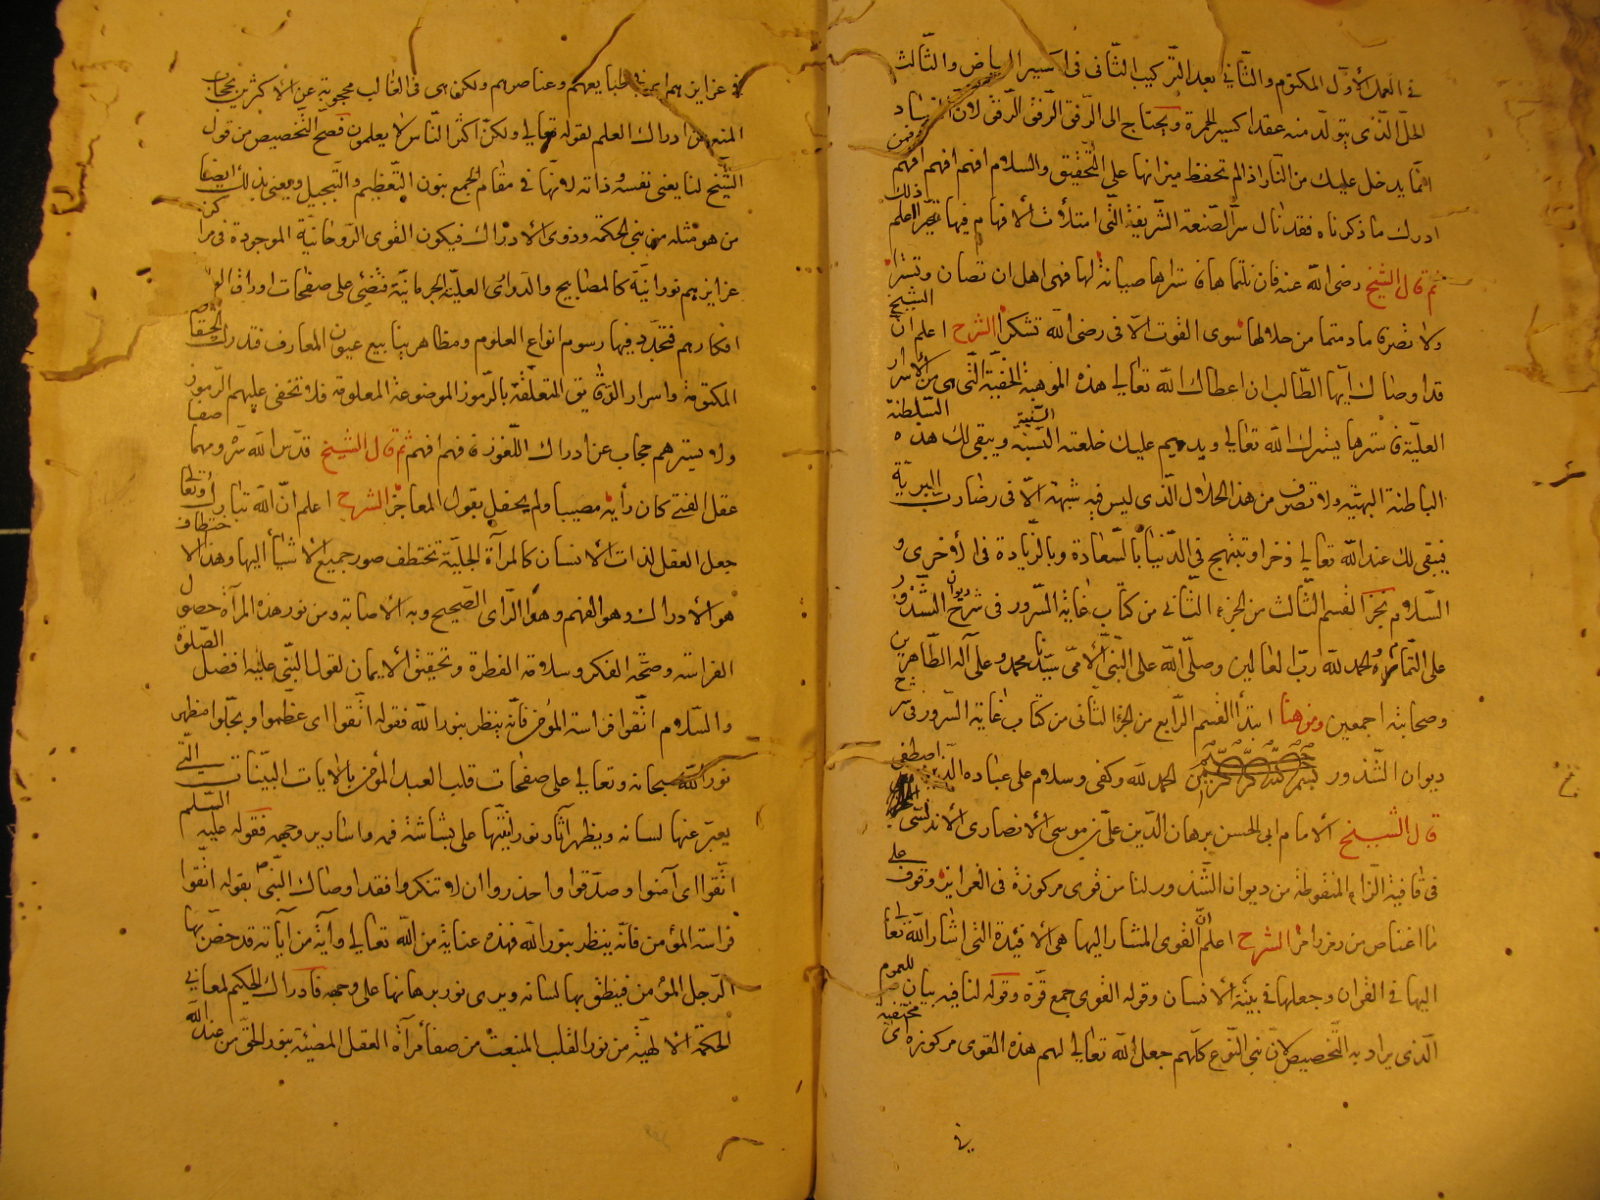 في العمل الأوّل المكتوم والثّاني بعد التّركيب الثّاني في اكسير البياض والثّالث
الحلّ الّذي يتولّد منه عقد اكسير الحمرة ويحتاج الى الرّفق الرّفق الرّفق لانّ الفساد
انّما يدخل عليك من النّار اذا لم تحفظ ميزانها على التّحقيق والسلام افهم افهم افهم فمن
ادرك ما ذكرناه فقد نال سرّ الصّنعة الشّريفة الّتي امتلأت الأفهام فيها تحيّرا اعلم ذلك
ثمّ قال الشّيخ رضى الله عنه فان نلتماها فاستراها صيانة لها فهى اهل ان تصان وتسترا
ولا تصرفا ما دمتما من حلالها سوى القوت الّا في رضى الله تشكرا الشرح اعلم انّ الشّيخ
قد اوصاك ايّها الطّالب ان اعطاك الله تعالى هذه الموهبة الخفيّة الّتي هي من الأسرار
العليّة فاسترها يسترك الله تعالى ويديم عليك خلعته السّنيّة ويبقى لك هذه السّلطنة
الباطنة البهيّة ولا تصرف من هذا الحلال الّذي ليس فيه شبهة الّا في رضا ربّ البريّة
فيبقى لك عند الله تعالى ذخرا وتبتهج في الدّنيا بالسّعادة وبالزّيادة في الأخرى و
السّلام نجز القسم الثّالث من الجزء الثّاني من كتاب غاية السّرور في شرح ديوان الشّذور
على التّمام والحمد لله ربّ العالمين وصلّى الله على النّبيّ الأمّي سيّدنا محمد وعلى آله الطّاهرين
وصحابته اجمعين ومن هنا ابتدأ القسم الرّابع من الجزء الثّاني من كتاب غاية السّرور في شرح
ديوان الشّذور بسم الله الرّحمن الرّحيم الحمد لله وكفى وسلام على عباده الّذين اصطفى
قال الشّيخ الأمام ابى الحسن برهان الدّين علىّ بن موسى الأنصارى الأندلسّى
في قافية الزّاء المنقوطة من ديوان الشّذور لنا من قوى مركوزة في الغرايز وقوف على
ما اغتاص من رموز الشرح اعلم انّ القوى المشار اليها هى الأفئدة التي اشار الله تعالى
اليها في القرآن وجعلها في بنيّة الأنسان وقوله القوى جمع قوّة وقوله لنا فيه بيان للعموم
الّذي يراد به التّخصيص لانّ بني النّوع كلّهم جعل الله تعالى لهم هذه القوى مركوزة اى مختفية
في
في غرايزهم اى في طبايعهم وعناصرهم ولكن هى في الغالب محجوبة عن الأكثرين بحجاب
المنع من ادراك العلم لقوله تعالى ولكنّ اكثر النّاس لا يعلمون فصحّ التّخصيص من قول
الشّيخ لنا يعنى نفسه وذاته لانّها في مقام الجمع بنون التّعظيم والتّبجيل ويعنى بذلك ايضا
من هو مثله من بنى الحكمة وذوى الأدراك فيكون القوى الرّوحانيّة الموجودة في مراكز
غرايزهم نورانيّة كالمصابيح والدّرارى العليّة الجرمانيّة فتضئ على صفحات اوراق
افكارهم فتجدّد فيها رسوم انواع العلوم ومظاهر ينابيع عيون المعارف فتدرك الحقايق
المكتومة واسرار الدّقايق المتعلّقة بالرّموز الموضوعة المعلومة فلا تخفى عليهم الرّموز
ولا يسترهم حجاب عن ادراك اللّغوز فافهم افهم ثم قال الشّيخ قدّس الله سرّه ومهما صفا
عقل الفتى كان رأيه مصيبا ولم يحفل بقول المعاجز الشرح اعلم انّ الله تبارك وتعالى
جعل العقل لذات الأنسان كالمرآة الجليّة تختطف صور جميع الأشياء اليها وهذا الاختطاف
هو الأدراك وهو الفهم وهو الرّاى الصّحيح وبه الأصابة ومن نور هذه المرآة حصول
الفراسة وصحّة الفكر وسلامة الفطرة وتحقيق الأيمان لقول النّبيّ عليه افضل الصّلوة
والسّلام اتّقوا فراسة المؤمن فانّه ينظر بنور الله فقوله اتّقوا اى عظّموا وبجّلوا مظهر
نور الله سبحانه وتعالى على صفحات قلب العبد المؤمن بالآيات البيّنات الّتي
يعبّر عنها لسانه ويظهر آثار نورانيّتها على بشاشة فمه واسارير وجهه فقوله عليه السّلم
اتّقوا اى آمنوا وصدّقوا واحذروا ان لا تنكروا فقد اوصاك النّبيّ ص بقوله اتّقوا
فراسة المؤمن فانّه ينظر بنور الله فهذه عناية من الله تعالى وآية من آياته قد خصّ بها
الرّجل المؤمن فينطق بها لسانه ويرى نور برهانها على وجهه فادراك الحكيم لمعانى
الحكمة الألهيّة من نور القلب المنبعث من صفاء مرآة العقل المضيئة بنور الحقّ من عند الله